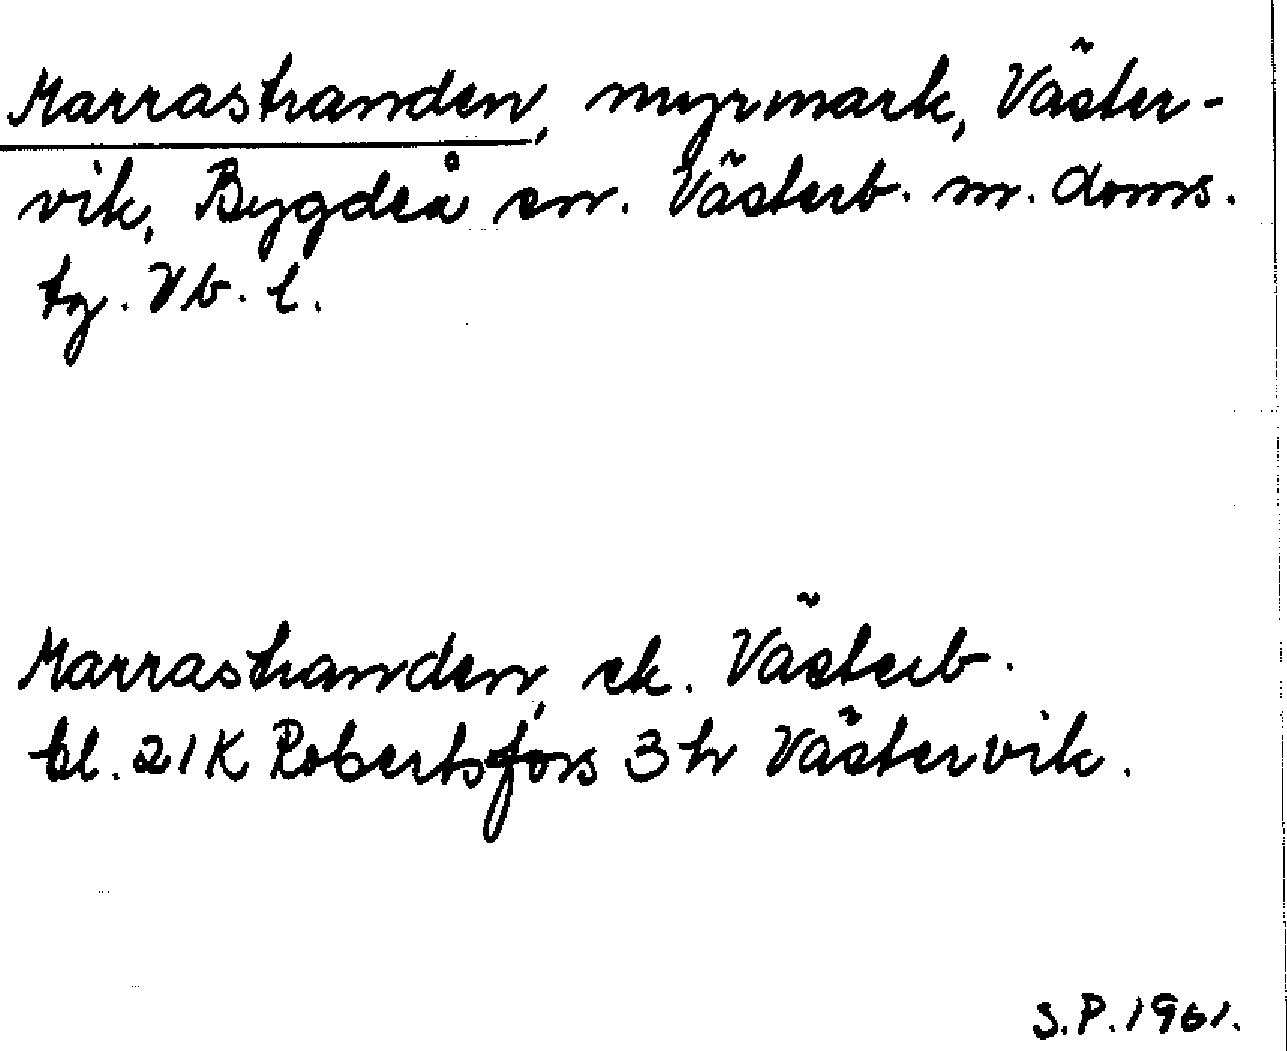 Marrastranden, myrmark, Väster-
vik, Bygdeå sn. Västerb. m. doms.
tg. Vb. l.
Marrastranden, ek. Västerb.
bl. 21K Robertsfors 3h Västervik.
S.P. 1961.